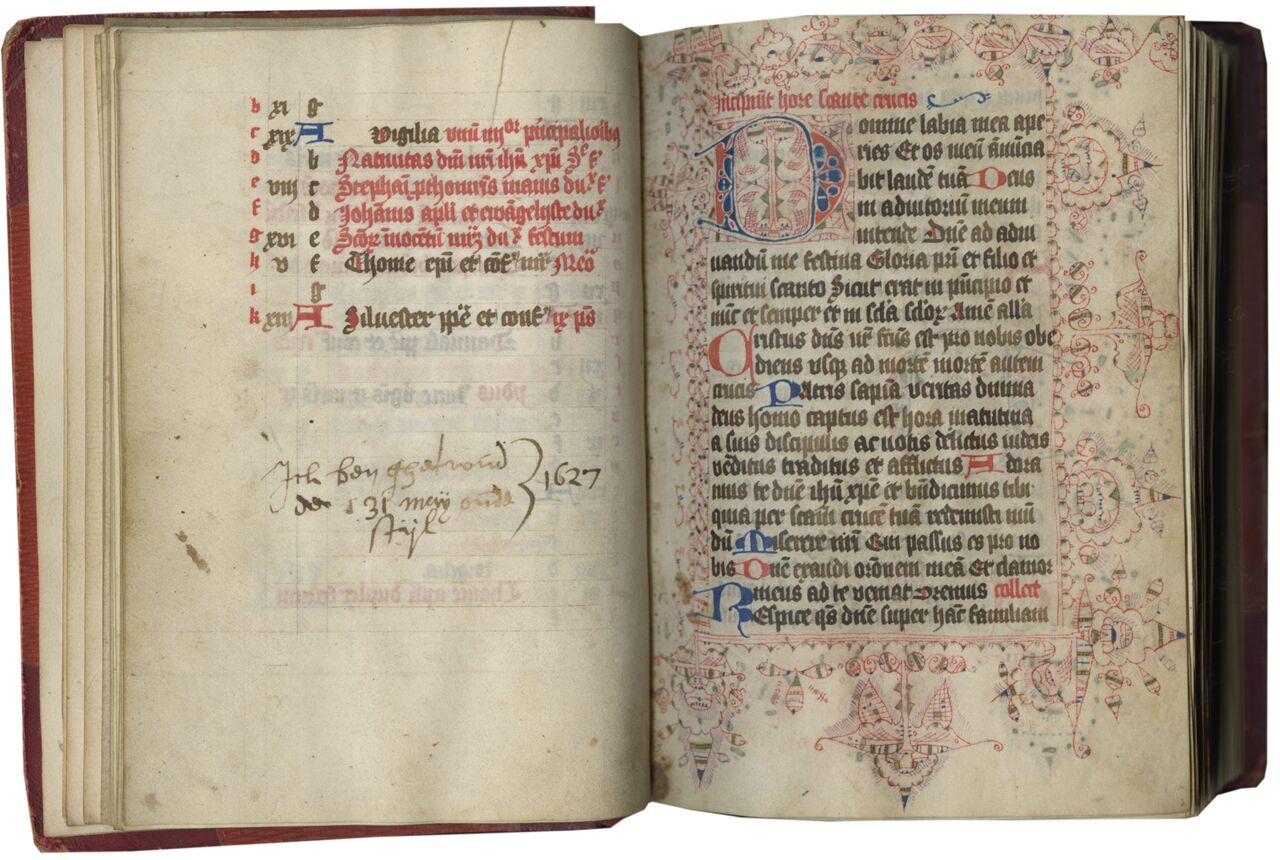 b xi g
c xix A Vigilia
d b Natiuitas dni nri ihu xpi
e viij c Stephani
f d Johanis apli et ewangeliste du
g xvi e Scor inocetu
h v f Thome epi et
i g
k xiij A Siluester ppe et conf
Ich ben ghetroud
den 31 meij oude
stijl
1627
Incipiut hore sancte crucis
Domine labia mea ape
ries Et os meu anucia
bit laude tua Deus
in adiutorium meum
intende Dne ad adiu
uandu me festina Gloria pri et filio et
spiritui sancto Sicut erat in pncipio et
nuc et semper et in scla sclor Ame alla
Cristus dns nr fcus est pro nobis obe
diens usq ad morte morte autem
crucis Patris sapia veritas diuina
deus homo captus est hora matutina
a suis discipulis ac notis delictus iudeis
veditus traditus et afflictus Adora
mus te dne ihu xpe et bndicimus tibi
quia per scam cruce tua redemisti mu
du Miserere nri Qui passus es pro no
bis Dne exaudi oronem mea Et clamor
meus ad te veniat Oremus collect
Respice qs dne super hanc familiam